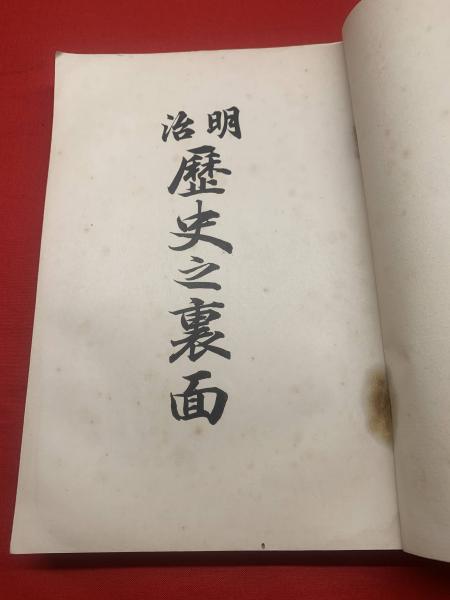 明治
歴史之裏面